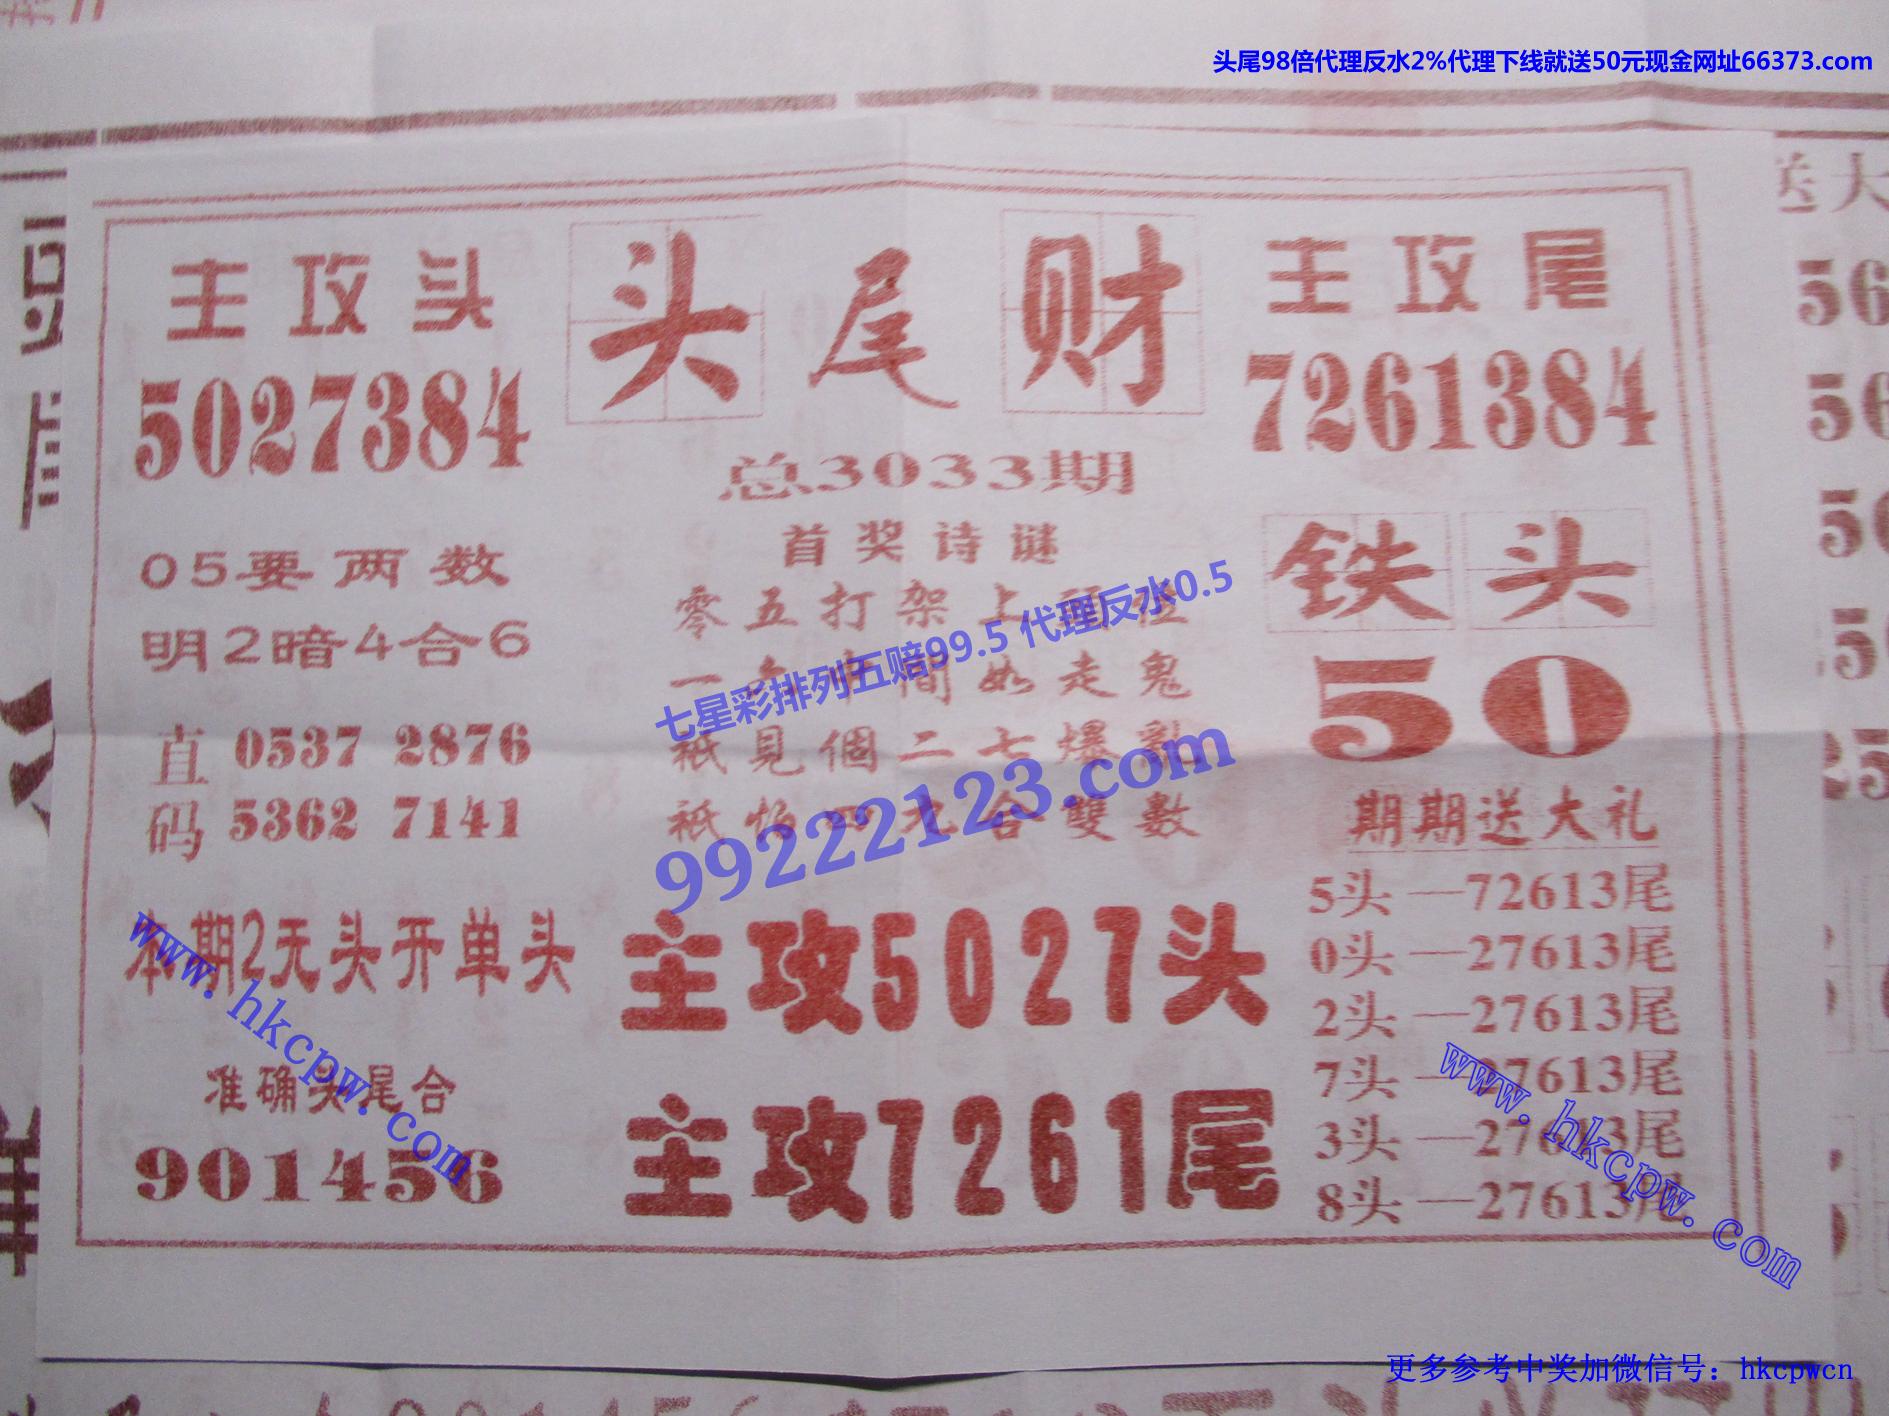 头尾98倍代理反水2%代理下线就送50元现金网址66373.com
主攻头
5027384
头尾财
主攻尾
7261384
总3033期
首奖诗谜
零五打架上頭
一 間如走鬼
祇見個二七爆亂
祇怕四九合雙數
七星彩排列五赔99.5 代理反水0.5
99222123.com
05要两数
明2暗4合6
直码
0537 2876
5362 7141
铁头
50
期期送大礼
5头—72613尾
0头—27613尾
2头—27613尾
7头—27613尾
3头—27613尾
8头—27613尾
本期2无头开单头
主攻5027头
主攻7261尾
准确头尾合
901456
www.hkcpw.com
www.hkcpw.com
更多参考中奖加微信号：hkcpwcn
送大
56
56